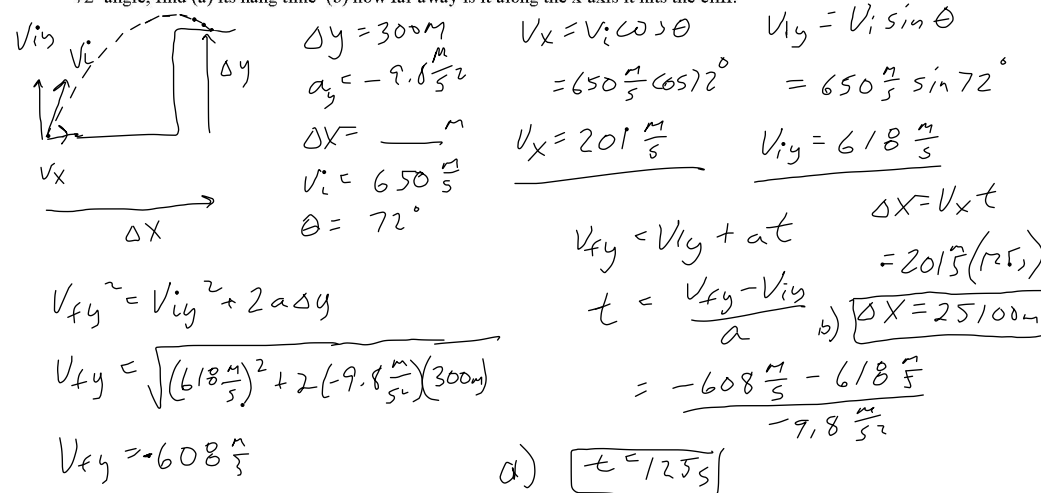 72° angle, find (a) its hang time (b) how far away is it along the x-axis it hits the cliff.
Viy
Vi
Δy
Vx
Δx
Δy = 300m
ay = -9.8 m/s²
Δx = ____ m
Vi = 650 m/s
θ = 72°
Vx = Vi cosθ
= 650 m/s cos72°
Vx = 201 m/s
Viy = Vi sinθ
= 650 m/s sin72°
Viy = 618 m/s
Vfy² = Viy² + 2aΔy
Vfy = √((618 m/s)² + 2(-9.8 m/s²)(300m))
Vfy = -608 m/s
Vfy = Viy + at
t = (Vfy - Viy)/a
= (-608 m/s - 618 m/s)/(-9.8 m/s²)
a) t = 125s
Δx = Vx t
= 201 m/s (125s)
b) Δx = 25100m